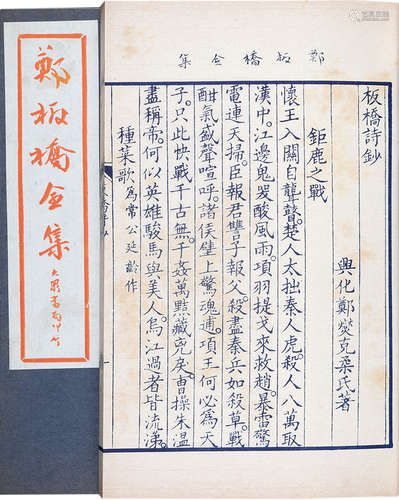 鄭板橋全集
鄭板橋全集
板橋詩鈔
興化鄭燮克柔氏著
鉅鹿之戰
懷王入關自聾瞽。楚人太拙秦人虎。殺人八萬取
漢中。江邊鬼哭酸風雨。項羽提戈來救趙。暴雷驚
電連天掃。臣報君讐子報父。殺盡秦兵如殺草。戰
酣氣盛聲喧呼。諸侯壁上驚魂逋。項王何必為天
子。只此快戰千古無。千姦萬黠藏兇戾。曹操朱温
盡稱帝。何似英雄駿馬與美人。烏江過者皆流涕。
種菜歌為常公延齡作